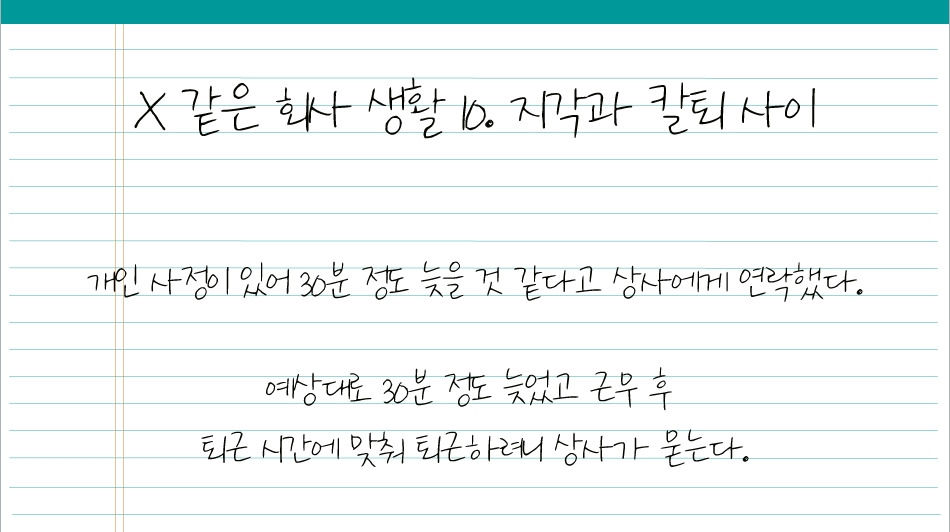 X 같은 회사 생활 10. 지각과 칼퇴 사이
개인 사정이 있어 30분 정도 늦을 것 같다고 상사에게 연락했다.
예상대로 30분 정도 늦었고 근무 후
퇴근 시간에 맞춰 퇴근하려니 상사가 묻는다.